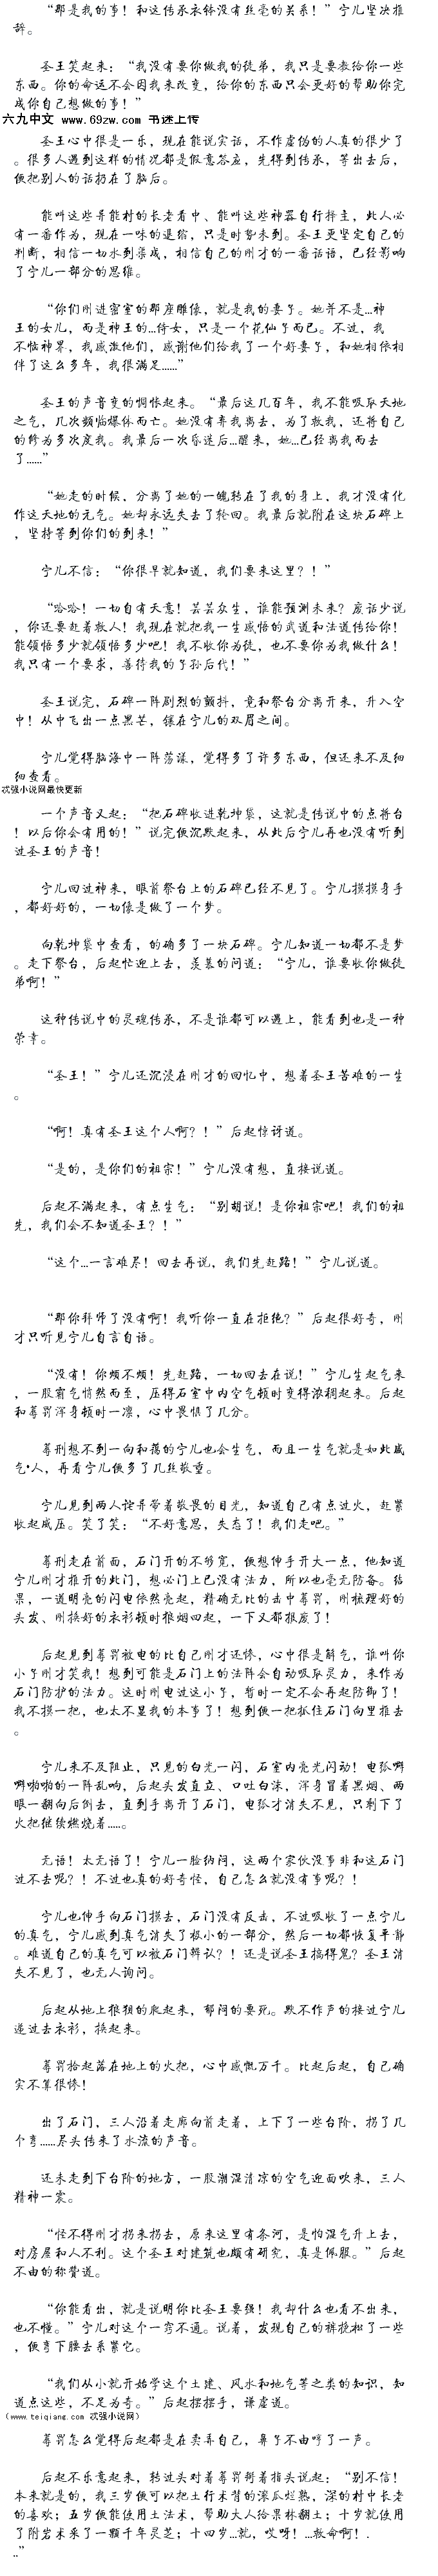 “那是我的事！和这传承衣钵没有丝毫的关系！”宁儿坚决推
辞。
圣王笑起来：“我没有要你做我的徒弟，我只是要教给你一些
东西。你的命运不会因我来改变，给你的东西只会更好的帮助你完
成你自己想做的事！”
六九中文 www.69zw.com 书迷上传
圣王心中很是一乐，现在能说实话，不作虚伪的人真的很少了
。很多人遇到这样的情况都是假意答应，先得到传承，等出去后，
便把别人的话扔在了脑后。
能叫这些异能村的长老看中、能叫这些神器自行择主，此人必
有一番作为，现在一味的退缩，只是时势未到。圣王更坚定自己的
判断，相信一切水到渠成，相信自己的刚才的一番话语，已经影响
了宁儿一部分的思维。
“你们刚进密室的那座雕像，就是我的妻子。她并不是…神
王的女儿，而是神王的…侍女，只是一个花仙子而已。不过，我
不恼神界，我感激他们，感谢他们给我了一个好妻子，和她相依相
伴了这么多年，我很满足……”
圣王的声音变的惆怅起来。“最后这几百年，我不能吸取天地
之气，几次频临爆体而亡。她没有弃我离去，为了救我，还将自己
的修为多次度我。我最后一次昏迷后…醒来，她…已经离我而去
了……”
“她走的时候，分离了她的一魄转在了我的身上，我才没有化
作这天地的元气。她却永远失去了轮回。我最后就附在这块石碑上
，坚持等到你们的到来！”
宁儿不信：“你很早就知道，我们要来这里？！”
“哈哈！一切自有天意！芸芸众生，谁能预测未来？废话少说
，你还要赶着救人！我现在就把我一生感悟的武道和法道传给你！
能领悟多少就领悟多少吧！我不收你为徒，也不要你为我做什么！
我只有一个要求，善待我的子孙后代！”
圣王说完，石碑一阵剧烈的颤抖，竟和祭台分离开来，升入空
中！从中飞出一点黑芒，镶在宁儿的双眉之间。
宁儿觉得脑海中一阵荡漾，觉得多了许多东西，但还来不及细
细查看。
次强小说网最快更新
一个声音又起：“把石碑收进乾坤袋，这就是传说中的点将台
！以后你会有用的！”说完便沉默起来，从此后宁儿再也没有听到
过圣王的声音！
宁儿回过神来，眼前祭台上的石碑已经不见了。宁儿摸摸身手
，都好好的，一切像是做了一个梦。
向乾坤袋中查看，的确多了一块石碑。宁儿知道一切都不是梦
。走下祭台，后起忙迎上去，羡慕的问道：“宁儿，谁要收你做徒
弟啊！”
这种传说中的灵魂传承，不是谁都可以遇上，能看到也是一种
荣幸。
“圣王！”宁儿还沉浸在刚才的回忆中，想着圣王苦难的一生
。
“啊！真有圣王这个人啊？！”后起惊讶道。
“是的，是你们的祖宗！”宁儿没有想，直接说道。
后起不满起来，有点生气：“别胡说！是你祖宗吧！我们的祖
先，我们会不知道圣王？！”
“这个…一言难尽！回去再说，我们先赶路！”宁儿说道。
“那你拜师了没有啊！我听你一直在拒绝？”后起很好奇，刚
才只听见宁儿自言自语。
“没有！你烦不烦！先赶路，一切回去在说！”宁儿生起气来
，一股霸气悄然而至，压得石室中内空气顿时变得浓稠起来。后起
和荀罚浑身顿时一凛，心中畏惧了几分。
荀刑想不到一向和蔼的宁儿也会生气，而且一生气就是如此威
气*人，再看宁儿便多了几丝敬重。
宁儿见到两人诧异带着敬畏的目光，知道自己有点过火，赶紧
收起威压。笑了笑：“不好意思，失态了！我们走吧。”
荀刑走在前面，石门开的不够宽，便想伸手开大一点，他知道
宁儿刚才推开的此门，想必门上已没有法力，所以也毫无防备。结
果，一道明亮的闪电依然亮起，精确无比的击中荀罚，刚梳理好的
头发、刚换好的衣衫顿时狼烟四起，一下又都报废了！
后起见到荀罚被电的比自己刚才还惨，心中很是解气，谁叫你
小子刚才笑我！想到可能是石门上的法阵会自动吸取灵力，来作为
石门防护的法力。这时刚电过这小子，暂时一定不会再起防御了！
我不摸一把，也太不显我的本事了！想到便一把抓住石门向里推去
。
宁儿来不及阻止，只见的白光一闪，石室内亮光闪动！电弧噼
噼啪啪的一阵乱响，后起头发直立、口吐白沫，浑身冒着黑烟、两
眼一翻向后倒去，直到手离开了石门，电弧才消失不见，只剩下了
火把继续燃烧着……。
无语！太无语了！宁儿一脸纳闷，这两个家伙没事非和这石门
过不去呢？！不过也真的好奇怪，自己怎么就没有事呢？！
宁儿也伸手向石门摸去，石门没有反击，不过吸收了一点宁儿
的真气，宁儿感到真气消失了极小的一部分，然后一切都恢复平静
。难道自己的真气可以被石门辨认？！还是说圣王搞得鬼？圣王消
失不见了，也无人询问。
后起从地上狼狈的爬起来，郁闷的要死。默不作声的接过宁儿
递过去衣衫，换起来。
荀罚拾起落在地上的火把，心中感慨万千。比起后起，自己确
实不算很惨！
出了石门，三人沿着走廊向前走着，上下了一些台阶，拐了几
个弯……尽头传来了水流的声音。
还未走到下台阶的地方，一股潮湿清凉的空气迎面吹来，三人
精神一震。
“怪不得刚才拐来拐去，原来这里有条河，是怕湿气升上去，
对房屋和人不利。这个圣王对建筑也颇有研究，真是佩服。”后起
不由的称赞道。
“你能看出，就是说明你比圣王要强！我却什么也看不出来，
也不懂。”宁儿对这个一窍不通。说着，发现自己的裤挽松了一些
，便弯下腰去系紧它。
“我们从小就开始学这个土建、风水和地气等之类的知识，知
道点这些，不足为奇。”后起摆摆手，谦虚道。
（www.teiqiang.com 次强小说网）
荀罚怎么觉得后起都是在卖弄自己，鼻子不由哼了一声。
后起不乐意起来，转过头对着荀罚掰着指头说起：“别不信！
本来就是的，我三岁便可以把土行术背的滚瓜烂熟，深的村中长老
的喜欢；五岁便能使用土法术，帮助大人给果林翻土；十岁就使用
了附岩术采了一颗千年灵芝；十四岁…就，哎呀！…救命啊！.
..”